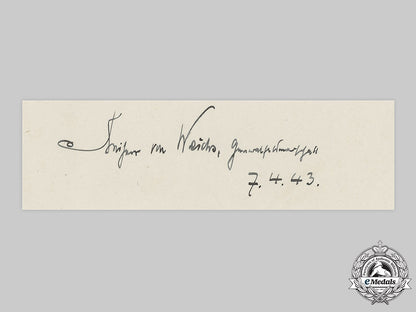 Freiherr von Weichs, Generalfeldmarschall
7.4.43.
eMedals